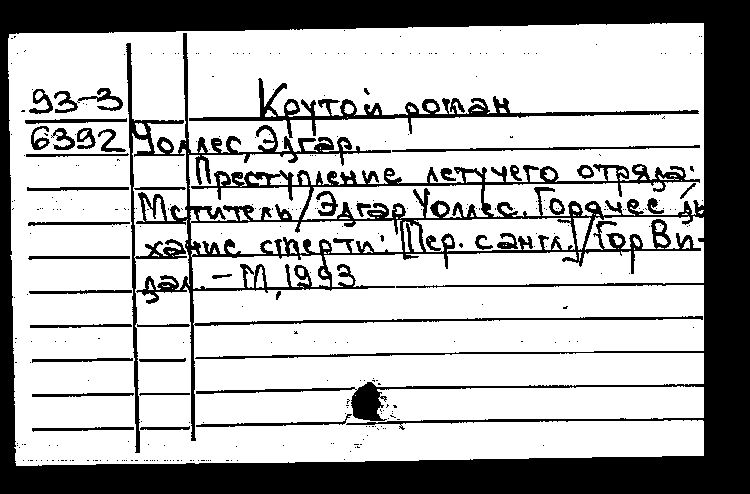 93-3 Крутой роман
6392 Уоллес, Эдгар.
Преступление летучего отряда:
Мститель / Эдгар Уоллес. Горячее ды-
хание смерти: [Пер. с англ.] / Гор Ви-
дал. - М, 1993